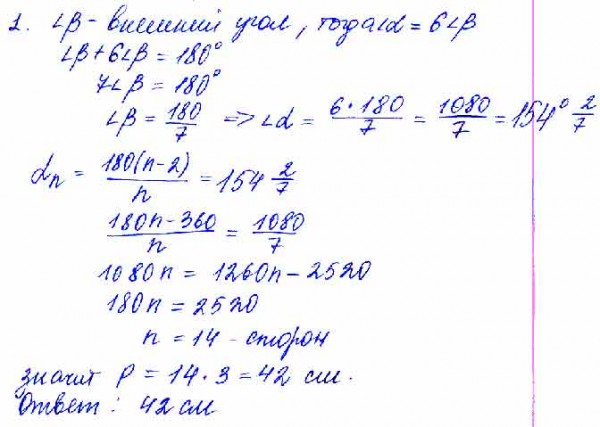 1. ∠β - внешний угол, тогда ∠α = 6∠β
∠β + 6∠β = 180°
7∠β = 180°
∠β = 180/7 => ∠α = 6·180/7 = 1080/7 = 154° 2/7
αₙ = 180(n-2)/n = 154 2/7
180n - 360/n = 1080/7
1080n = 1260n - 2520
180n = 2520
n = 14 - сторон
значит P = 14 · 3 = 42 см.
Ответ: 42 см